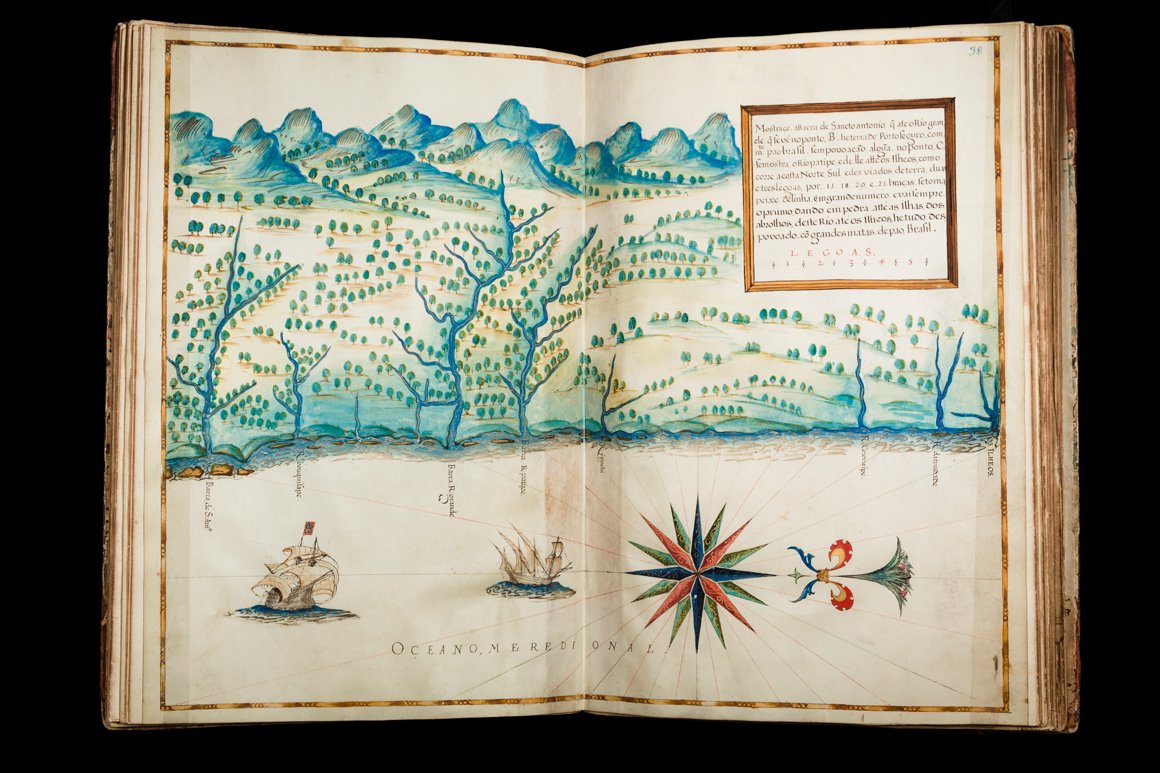 38
Mostrace, abarra de Sancto antonio, q̃ ate o Rio gran
de q̃ se vé no ponto. B. he terra de Porto seguro, com
m.to pao brasil. sem povoação algũa. no ponto C.
se mostra, o Rio patipe. e de lle atte os Ilheos, como
corre, a costa Norte Sul. e des viados, de terra, duas
e tres legoas, por 15. 18. 20. e. 25 braças, se toma
peixe de linha, em grande numero. e vai sempre
o prumo, dando em pedra, atte as Ilhas, dos
abrolhos, deste Rio ate os Ilheos, he tudo des
povoado. cõ grandes matas, de pao Brasil.
LEGOAS.
1 2 3 4 5
Barra de S. Ant.o
Barra R. grande
Barra R. patipe.
R. da trindade.
ILHEOS
OCEANO, MEREDIONAL